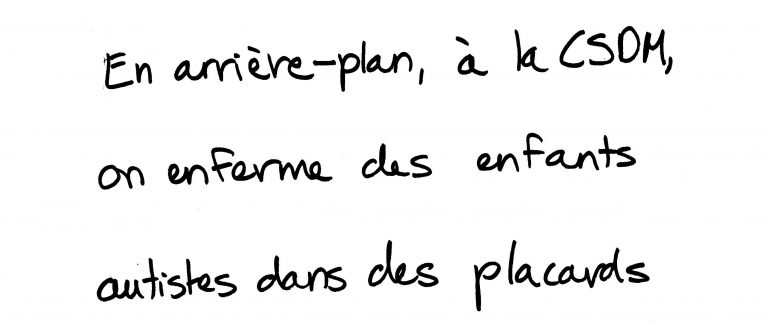 En arrière-plan, à la CSDM,
on enferme des enfants
autistes dans des placards